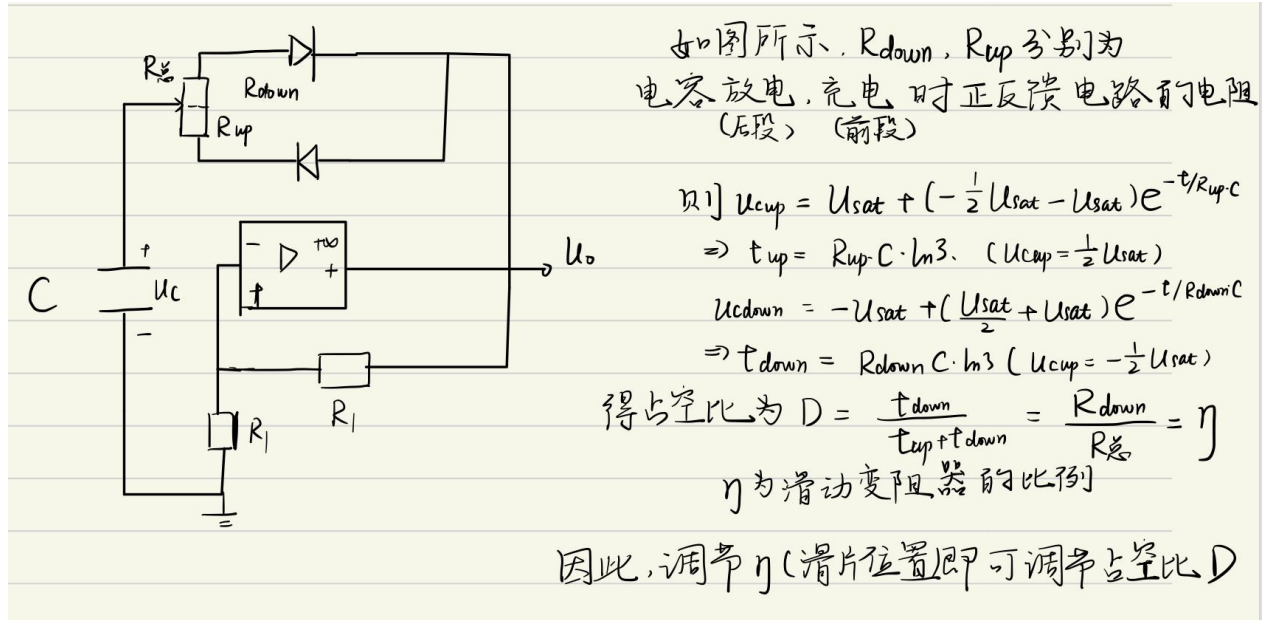 R总
Rdown
Rup
+
C
Uc
-
-
+∞
+
+
U₀
R₁
R₁
如图所示,Rdown,Rup分别为
电容放电,充电时正反馈电路的电阻
(后段) (前段)
则 Ucup = Usat + (-1/2 Usat - Usat) e^(-t/Rup·C)
⇒ tup = Rup·C·ln3. (Ucup = 1/2 Usat)
Ucdown = -Usat + (Usat/2 + Usat) e^(-t/Rdown·C)
⇒ tdown = Rdown C·ln3 (Ucup = -1/2 Usat)
得占空比为 D = tdown/(tup+tdown) = Rdown/R总 = η
η为滑动变阻器的比例
因此,调节η(滑片位置)即可调节占空比D